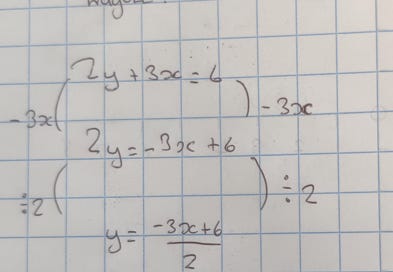 2y + 3x = 6
-3x ( ) -3x
2y = -3x + 6
÷2 ( ) ÷2
y = \frac{-3x+6}{2}